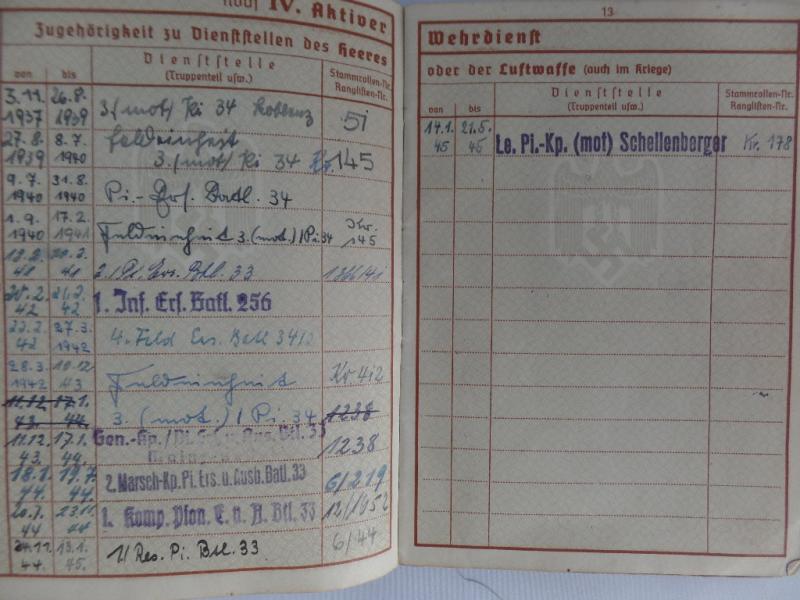 noch IV. Aktiver
Zugehörigkeit zu Dienststellen des Heeres
von bis Dienststelle (Truppenteil usw.) Stammrollen-Nr. Ranglisten-Nr.
3.11. 1937 26.8. 1939 3/(mot) Pi 34 Koblenz 51
27.8. 1939 8.7. 1940 Feldeinheit 3. (mot) Pi 34 Kr. 145
9.7. 1940 31.8. 1940 Pi.- Ers. Batl. 34
1.9. 1940 17.2. 1941 Feldeinheit 3. (mot.) / Pi 34 Kr. 145
41 20.2. 41 2./Pi. Ers. Btl. 33
20.2. 42 42 1. Inf. Ers. Batl. 256
42 27.3. 1942 4. Feld Ers. Batl
28.3. 1942 10.12. 43 Feldeinheit Kr. 412
11.12. 43. 17.1. 44 3. (mot.) / Pi 34 1238
11.12. 43. 17.1. 44. Gen.-Kp./Pi. Btl. 33 1238
18.1. 44. 19.7. 44. 2. Marsch-Kp. Pi. Ers. u. Ausb. Batl. 33 6/219
20.7. 44 23.11. 44 1. Komp. Pion. E. u. A. Btl. 33
24.11. 44. 13.1. 45. 1/ Res. Pi. Btl. 33 6/44
13
Wehrdienst
oder der Luftwaffe (auch im Kriege)
von bis Dienststelle (Truppenteil usw.) Stammrollen-Nr. Ranglisten-Nr.
14.1. 45 21.5. 45 Le. Pi.-Kp. (mot) Schellenberger Kr. 178